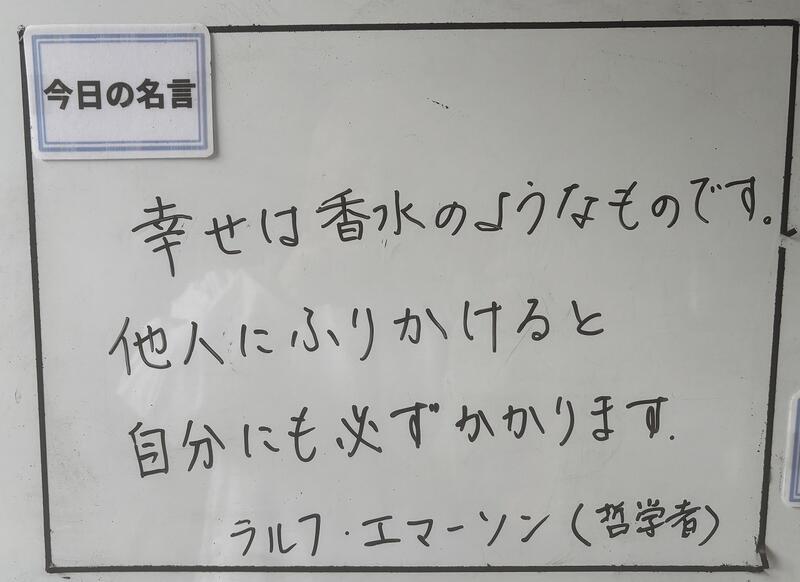 今日の名言
幸せは香水のようなものです。
他人にふりかけると
自分にも必ずかかります.
ラルフ・エマーソン(哲学者)